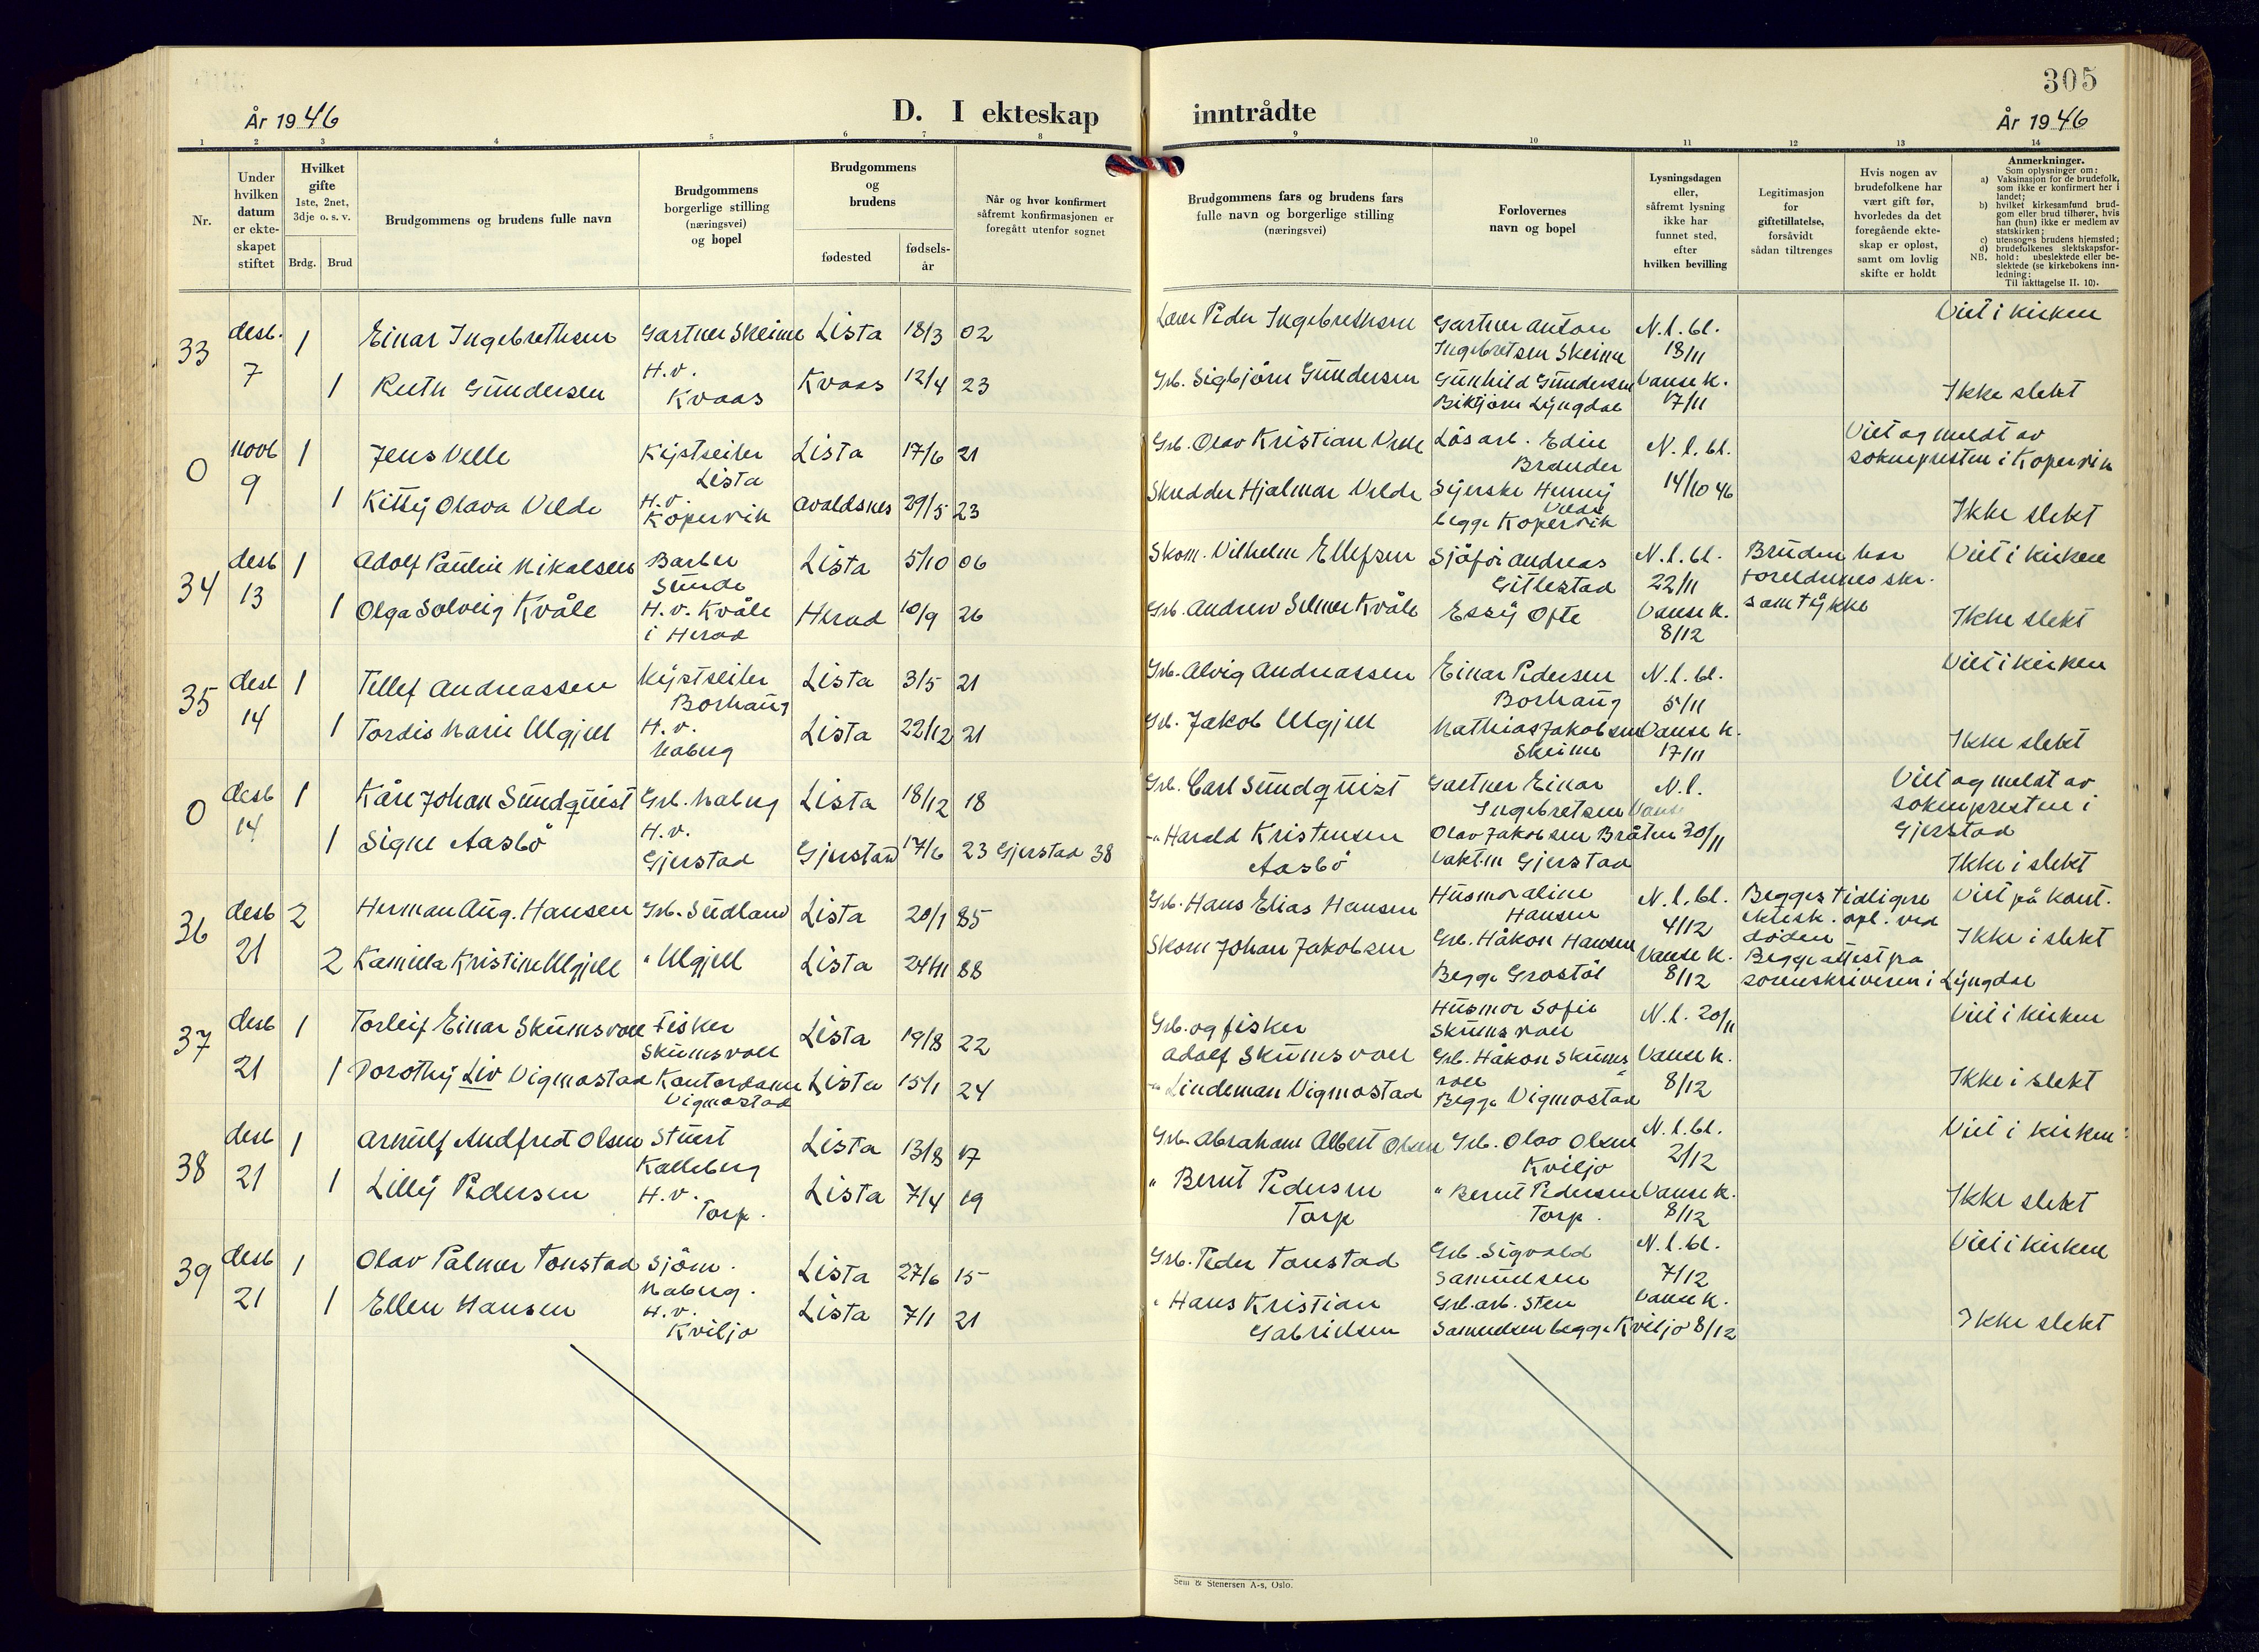 305
År 1946
D. I ekteskap inntrådte
År 1946
1 2 3 4 5 6 7 8 9 10 11 12 13 14
Nr.
Under
hvilken
datum
er ekte-
skapet
stiftet
Hvilket
gifte
1ste, 2net,
3dje o. s. v.
Brdg. Brud
Brudgommens og brudens fulle navn
Brudgommens
borgerlige stilling
(næringsvei)
og bopel
Brudgommens
og
brudens
fødested
fødsels-
år
Når og hvor konfirmert
såfremt konfirmasjonen er
foregått utenfor sognet
Brudgommens fars og brudens fars
fulle navn og borgerlige stilling
(næringsvei)
Forlovernes
navn og bopel
Lysningsdagen
eller,
såfremt lysning
ikke har
funnet sted,
efter
hvilken bevilling
Legitimasjon
for
giftetillatelse,
forsåvidt
sådan tiltrenges
Hvis nogen av
brudefolkene har
vært gift før,
hvorledes da det
foregående ekte-
skap er opløst,
samt om lovlig
skifte er holdt
Anmerkninger.
Som oplysninger om:
a) Vaksinasjon for de brudefolk,
som ikke er konfirmert her i
landet;
b) hvilket kirkesamfund brud-
gom eller brud tilhører, hvis
han (hun) ikke er medlem av
statskirken;
c) utensogns brudens hjemsted;
d) brudefolkenes slektskapsfor-
hold: ubeslektede eller be-
slektede (se kirkebokens inn-
ledning:
NB.
Til iakttagelse II. 10).
33 desb. 7 1 Einar Ingebrethsen Gartner Skeime Lista 18/3 02
1 Ruth Gundersen H.v. Kvaas Kvaas 12/4 23
Lærer Peder Ingebrethsen Gartner Anton Ingebretsen Skeime N.l.bl. 13/11 Viet i kirken
Grb. Sigbjørn Gundersen Gunhild Gundersen Lyngdal Vanse k. 17/11 Ikke slekt
0 novb 9 1 Jens Velle Kystseiler Lista Lista 17/6 21
1 Kitty Olava Velde H.v. Kopervik Avaldsnes 29/5 23
Grb. Olav Kristian Velle Løsarb. Edin Brduder N.l.bl. Viet og meldt av soknepresten i Kopervik
Skredder Hjalmar Velde Syerske Henny Velde begge Kopervik 14/10 46 Ikke slekt
34 desb 13 1 Adolf Paulin Nikolsen Barber Sunde Lista 5/10 06
1 Olga Solveig Kvåle H.v. Kvåle i Herad Herad 10/9 26
Skom. Vilhelm Ellefsen Sjåfør Andreas Gitlestad N.l.bl. 22/11 Bruden har foreldrenes skr. samtykke Viet i kirken
Grb. Andrew Selmer Kvåle Essy Ofte Vanse k. 8/12 Ikke slekt
35 desb 14 1 Tellef Andreassen Kystseiler Borhaug Lista 3/5 21
1 Tordis Marie Ulgjell H.v. Naberg Lista 22/12 21
Grb. Alvig Andreassen Einar Pedersen Borhaug N.l.bl. 5/11 Viet i kirken
Grb. Jakob Ulgjell Mathias Jakobsen Skeime Vanse k. 17/11 Ikke slekt
0 desb 14 1 Kåre Johan Sundquist Grb. Naberg Lista 18/12 18
1 Signe Aasbö H.v. Gjerstad Gjerstad 17/6 23 Gjerstad 38
Grb. Carl Sundquist Gartner Einar Ingebretsen Vanse N.l. Viet og meldt av soknepresten i Gjerstad
-"- Harald Kristensen Aasbö Olav Jakobsen Bråten Vaktm Gjerstad 20/11 Ikke i slekt
36 desb 21 2 Herman Aug. Hansen Grb. Sudland Lista 20/1 85
2 Kamilla Kristine Ulgjell " Ulgjell Lista 24/11 88
Grb. Hans Elias Hansen Husmor Aline Hansen N.l.bl. 4/12 Begges tidligere ektesk. opl. ved døden Viet på kont.
Skom Johan Jakobsen Grb. Håkon Hansen Begge Grostøl Vanse k. 8/12 Begge attest fra sorenskriveren i Lyngdal Ikke i slekt
37 desb 21 1 Torleif Einar Skumsvoll Fisker Skumsvoll Lista 19/8 22
1 Dorothy Liv Vigmostad Kontordame Vigmostad Lista 15/1 24
Grb. og fisker Adolf Skumsvoll Husmor Sofie Skumsvoll N.l. 20/11 Viet i kirken
-"- Lindeman Vigmostad Grb. Håkon Skumsvoll Begge Vigmostad Vanse k. 8/12 Ikke i slekt
38 desb 21 1 Arnulf Andfred Olsen Stuert Kalleberg Lista 13/8 17
1 Lilly Pedersen H.v. Torp. Lista 7/4 19
Grb. Abraham Albert Olsen Grb. Olav Olsen Kviljo N.l.bl. 2/12 Viet i kirken
" Bernt Pedersen Torp " Bernt Pedersen Torp. Vanse k. 8/12 Ikke slekt
39 desb 21 1 Olav Palmer Tonstad Sjøm. Naberg. Lista 27/6 15
1 Ellen Hansen H.v. Kviljo Lista 7/1 21
Grb. Peder Tonstad Grb. Sigvald Samuelsen N.l.bl. 7/12 Viet i kirken
" Hans Kristian Gabrielsen Grb.arb. Sten Samuelsen begge Kviljo Vanse k. 8/12 Ikke slekt
Sem & Stenersen A-s, Oslo.